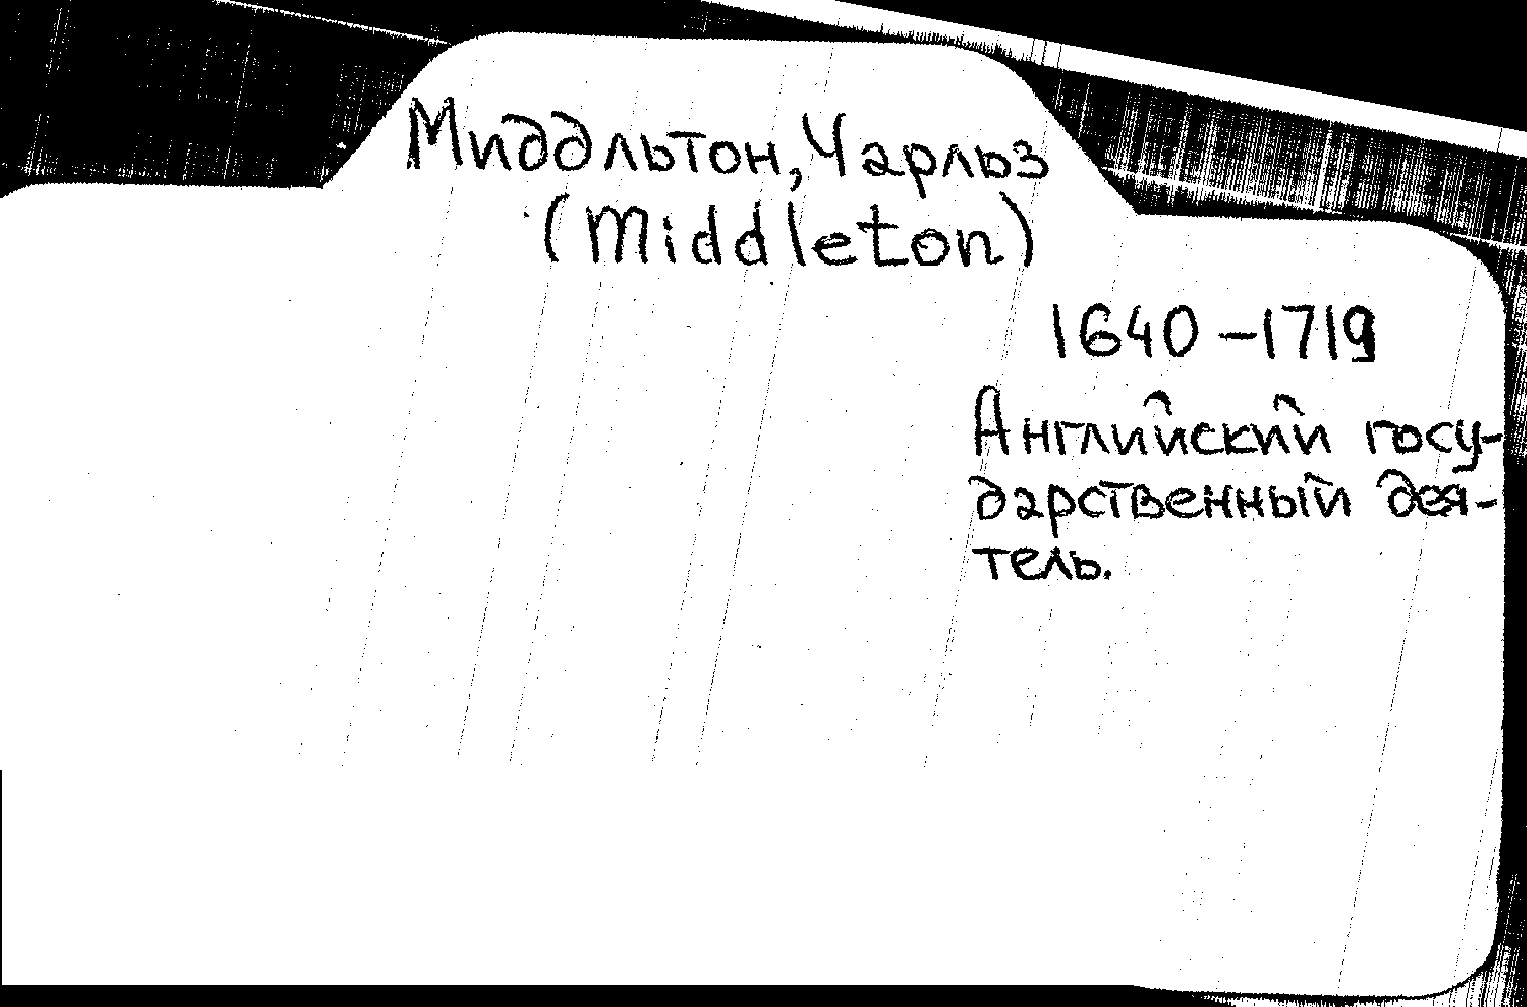 Миддльтон, Чарльз
(Middleton)
1640 – 1719
Английский госу-
дарственный дея-
тель.